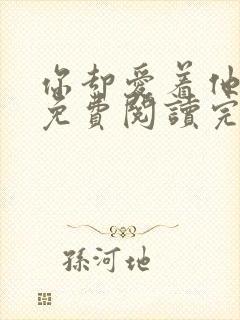 你却愛着他
免費閱讀完
孫河地